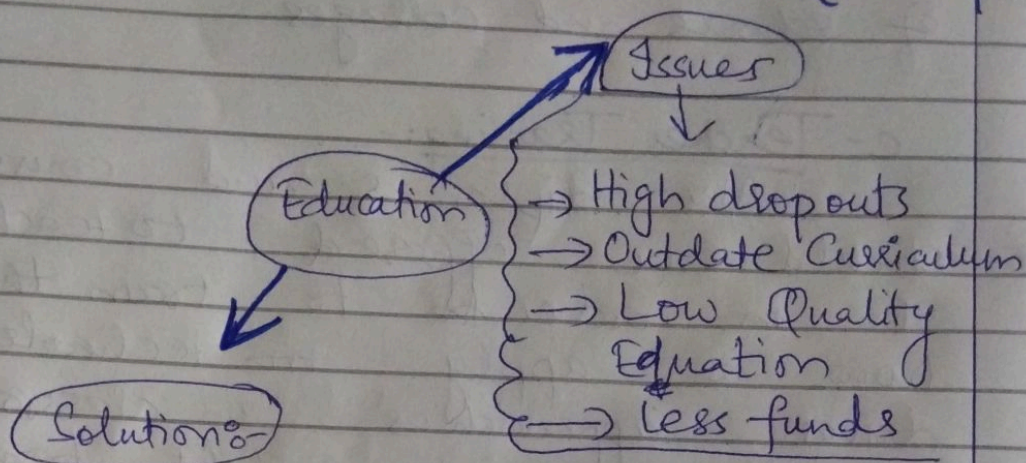 Issues
Education
→ High dropouts
→ Outdate Curriculum
→ Low Quality
Equation
→ Less funds
Solution:-